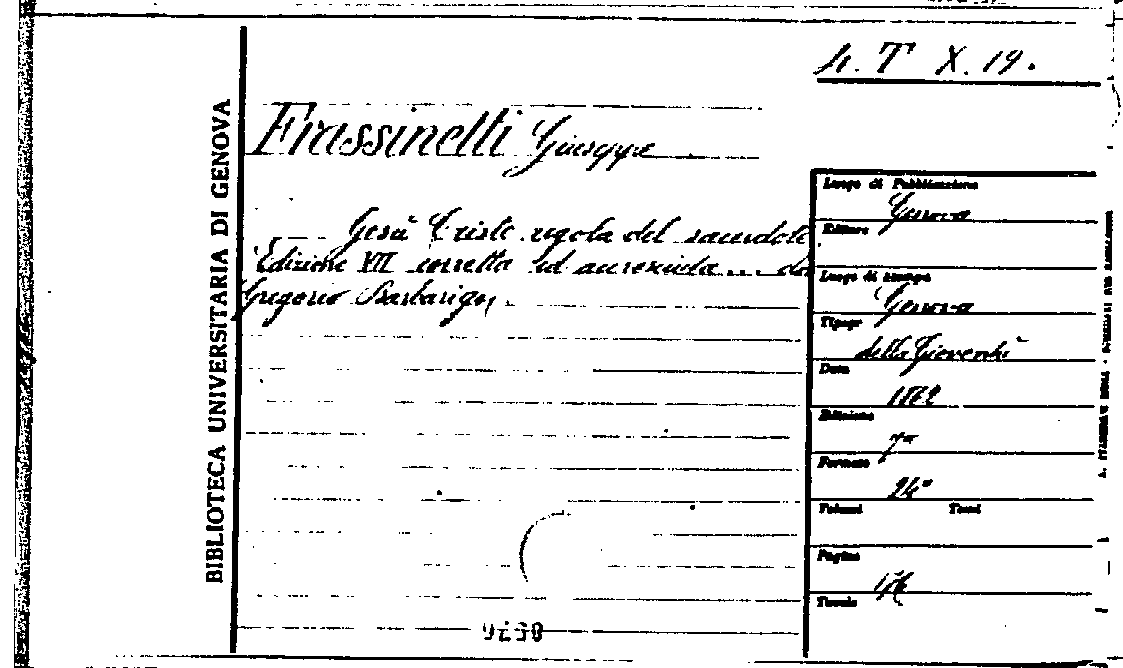 4. T X. 19.
BIBLIOTECA UNIVERSITARIA DI GENOVA
Frassinetti Giuseppe
Gesù Cristo regola del sacerdote
Edizione VII corretta ed accresciuta ... da
Gregorio Barbarigo,
Luogo di Pubblicazione
Genova
Editore
Luogo di stampa
Genova
Tipogr
della Gioventù
Data
Edizione
7ª
Formato
24°
Volumi Tomi
Pagine
Tavole